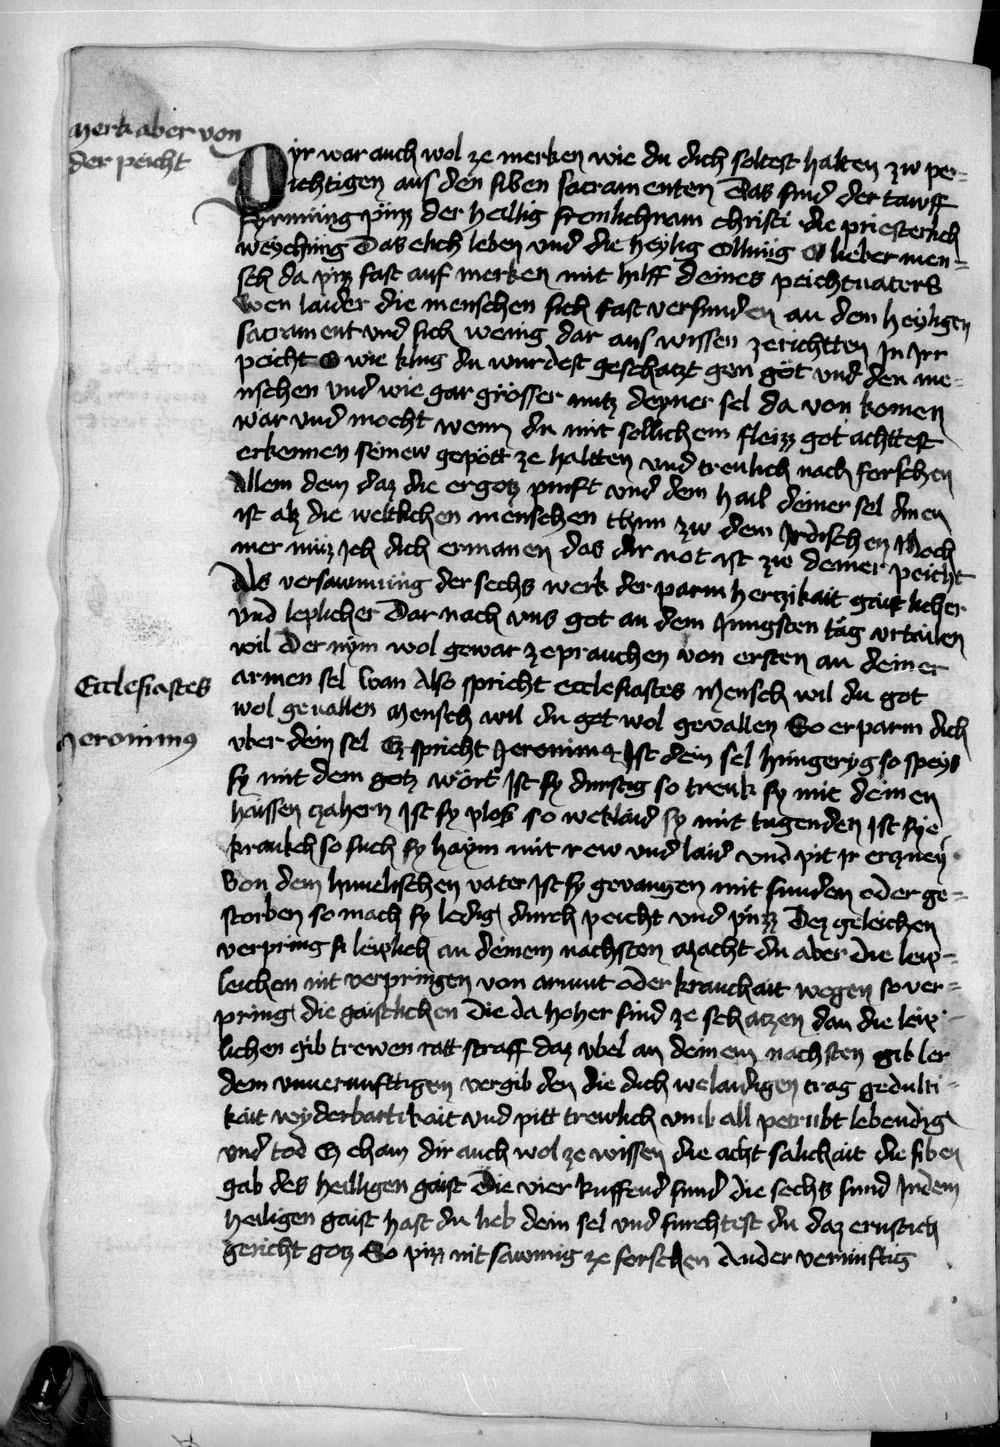 Merk aber von
der peicht
Dyr war auch wol ze merken wie du dich soltest halten zw per-
ichtigen aus den siben sacramenten Das sind der tawff
Fyrmung pusz der heillig fronlichnam christi die priesterlich
weyching Das elich leben vnd die heylig ollung O lieber men-
sch da pisz fast auf merken mit hilff deines peichtuaters
Wen laider die menschen sich fast versunden an dem heyligen
sacrament vnd sich wenig dar aus wissen zerichtten Jn Jrr
peicht O wie klug du wurdest geschatzt gen got vnd den me-
nschen vnd wie gar grosser nutz deyner sel da von komen
war vnd mocht wenn du mit sollichem fleizz got achttest
erkennen seinew gepott ze haltten vnd treulich nach forschen
Allem dem daz die ergotz pruft vnd dem hail deiner sel dinen
ist alz die weltlichen menschen thun zw dem Jrdischen Noch
mer muz Jch dich ermanen das dir not ist zw deiner peicht
Als versawmung der sechs werk der parmhertzikait gaistlicher
vnd leplicher Dar nach vns got an dem Jungsten tag vrtailen
wil Der nym wol gewar ze prauchen von ersten an deiner
Ecclesiastes
armen sel wan Also spricht ecclesiastes Mensch wil du got
wol geuallen Mensch wil du got wol gevallen So erparm dich
Jeronimus
vber dein sel Ez spricht Jeronimus Jst dein sel hungeryg so speys
sy mit dem gotz wort Jst sy durstig so trenk sy mit deinen
haissen zahern Jst sy plos so weklaid sy mit tugenden Jst sye
krankch so such sy haym mit rew vnd laid vnd pit Jr ertzney
Von dem himelischen vater Jst sy gevangen mit sunden oder ge-
storben so mach sy ledig durch peicht vnd pusz Dez geleichen
verpring si leiplich an deinem nachsten Macht du aber die leip-
leichen nit verpringen von armut oder kranchait wegen so ver-
pring die gaistlichen Die da hoher sind ze schatzen dan die leip-
lichen gib trewen ratt straff daz vbel an deinem nachsten gib ler
dem vnuernufttigen vergib den die dich welaidigen trag gedulti-
kait wyderbartikait vnd pitt trewlich vmb all petrubt lebendig
vnd tod Ez cham dir auch wol ze wissen die acht salichait die siben
gab des heilligen gaist Die vier Ruffend sund die sechs sund Jn dem
heiligen gaist hast du lieb dein sel vnd furchtest du daz ernstich
gericht gotz So pisz nit sawmig ze forschen Ander vernuftig